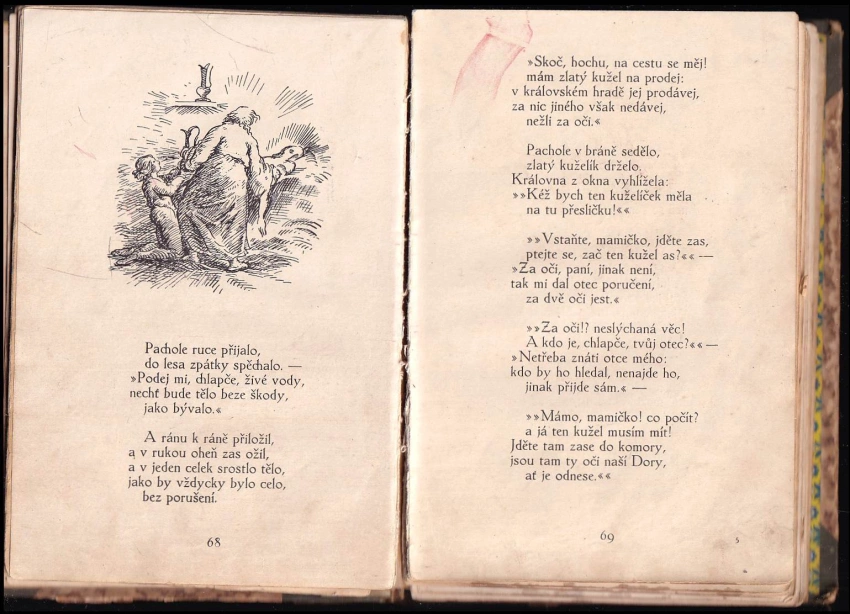 Pachole ruce přijalo,
do lesa zpátky spěchalo. —
»Podej mi, chlapče, živé vody,
nechť bude tělo beze škody,
jako bývalo.«
A ránu k ráně přiložil,
a v rukou oheň zas ožil,
a v jeden celek srostlo tělo,
jako by vždycky bylo celo,
bez porušení.
68
»Skoč, hochu, na cestu se měj!
mám zlatý kužel na prodej:
v královském hradě jej prodávej,
za nic jiného však nedávej,
nežli za oči.«
Pachole v bráně sedělo,
zlatý kuželík drželo.
Královna z okna vyhlížela:
»»Kéž bych ten kuželíček měla
na tu přesličku!««
»»Vstaňte, mamičko, jděte zas,
ptejte se, zač ten kužel as?«« —
»Za oči, paní, jinak není,
tak mi dal otec poručení,
za dvě oči jest.«
»»Za oči!? neslýchaná věc!
A kdo je, chlapče, tvůj otec?«« —
»Netřeba znáti otce mého:
kdo by ho hledal, nenajde ho,
jinak přijde sám.« —
»»Mámo, mamičko! co počít?
a já ten kužel musím mít!
Jděte tam zase do komory,
jsou tam ty oči naší Dory,
ať je odnese.««
69
5